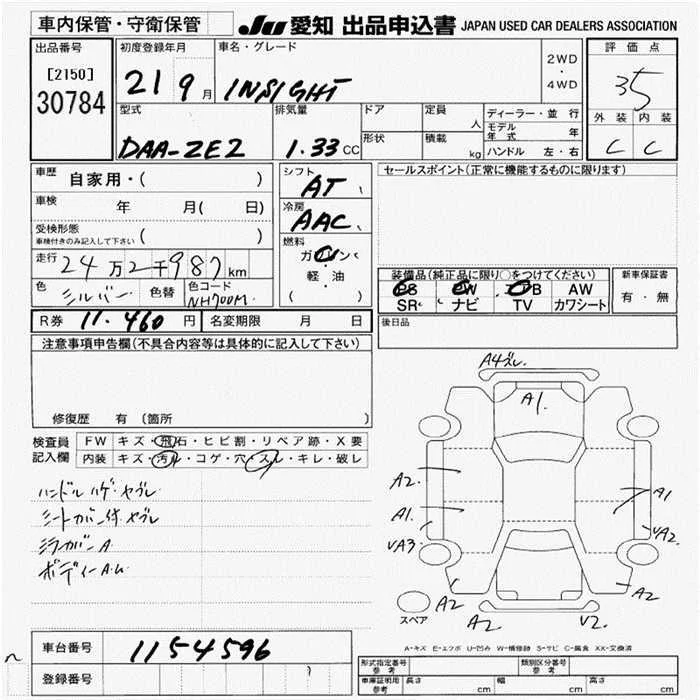 車内保管・守衛保管
JU 愛知 出品申込書 JAPAN USED CAR DEALERS ASSOCIATION
出品番号
[2150]
30784
初度登録年月
21 9 月
車名・グレード
INSIGHT
2WD
・
4WD
評価点
3.5
外装 内装
C C
型式
DAA-ZE2
排気量
1.33 CC
ドア
形状
定員
人
積載
kg
ディーラー・並行
モデル年式 年
ハンドル 左・右
車歴 自家用・( )
車検 年 月( 日)
受検形態
車検付きのみ記入して下さい ( )
走行 24万2千987km
色 シルバー 色替 色コード NH700M
シフト
AT
冷房
AAC
燃料
ガソリン
軽・油
( )
セールスポイント(正常に機能するものに限ります)
装備品(純正品に限り○をつけてください)
PS PW エアB AW
SR ナビ TV カワシート
新車保証書
有・無
後日品
R券 11,460 円 名変期限 月 日
注意事項申告欄(不具合内容等は具体的に記入して下さい)
修復歴 有 (箇所 )
検査員
記入欄
FW キズ・飛石・ヒビ割・リペア跡・X要
内装 キズ・汚れ・コゲ・穴・スレ・キレ・破レ
ハンドル ハゲ・ヤブレ
シートカバー付・ヤブレ
ミラーカバーA
ボディーA.U
A4ズレ
A1
A2
A1
UA3
A2
A2
A1
UA2
A2
V2
スペア
A-キズ E-エクボ U-凹み W-補修跡 S-サビ C-腐食 XX-交換済
車台番号 1154596
登録番号
形式指定番号
参考
類別区分番号
参考
車庫証明用
参考
長さ cm 幅 cm 高さ cm